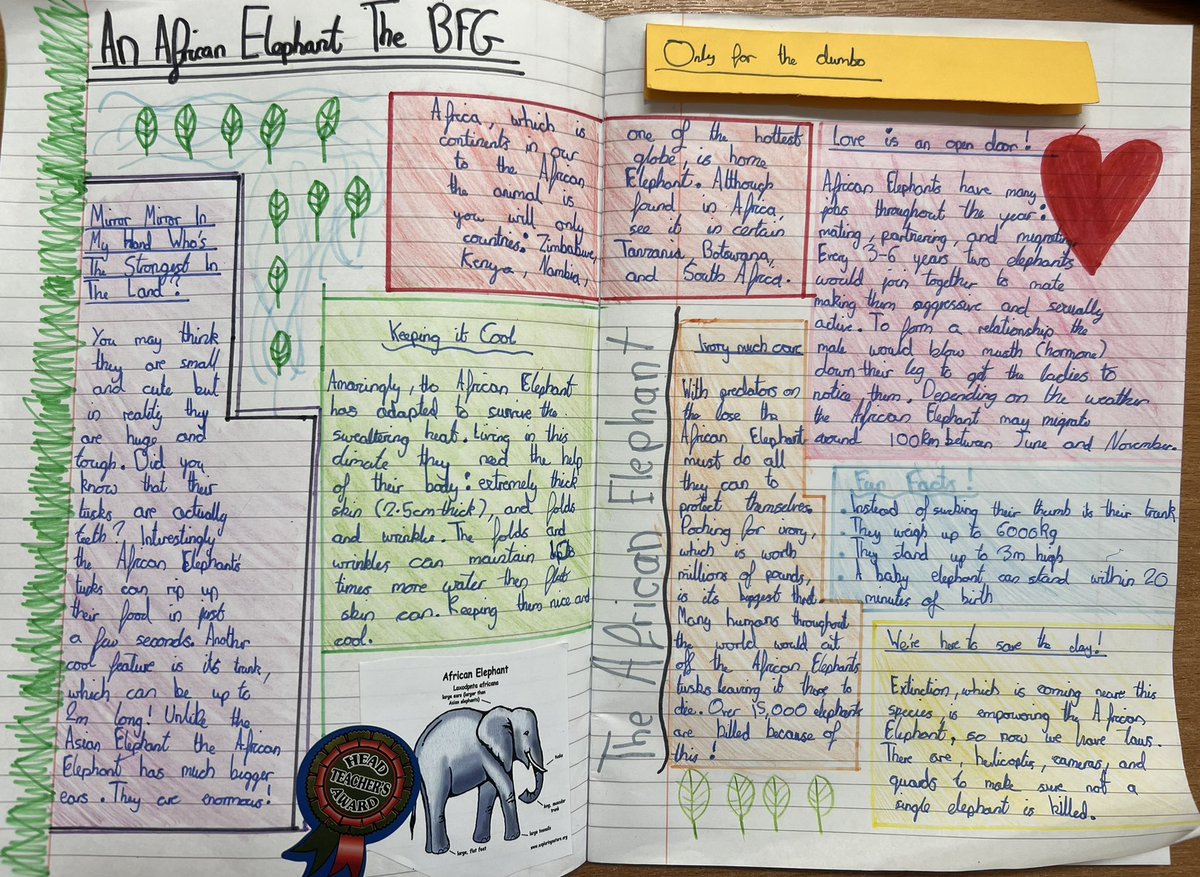 An African Elephant The BFG
Only for the dumbo
Mirror Mirror In
My Hand Who's
The Strongest In
The Land?
You may think
they are small
and cute but
in reality they
are huge and
tough. Did you
know that their
tusks are actually
teeth? Interestingly
the African Elephant's
tusks can rip up
their food in just
a few seconds. Another
cool feature is its trunk,
which can be up to
2m long! Unlike the
Asian Elephant the African
Elephant has much bigger
ears. They are enormous!
Africa, which is one of the hottest
continents in our globe, is home
to the African Elephant. Although
the animal is found in Africa,
you will only see it in certain
countries: Zimbabwe, Tanzania, Botswana,
Kenya, Nambia, and South Africa.
Keeping it Cool
Amazingly, the African Elephant
has adapted to survive the
swealtering heat. Living in this
climate they need the help
of their body: extremely thick
skin (2.5cm thick), and folds
and wrinkles. The folds and
wrinkles can maintain
times more water then flat
skin can. Keeping them nice and
cool.
African Elephant
Loxodonta africana
large ears (larger than
Asian elephants)
tusks
long, muscular
trunk
large toenails
large, flat feet
www.exploringnature.org
HEAD
TEACHER'S
AWARD
The African Elephant
Ivory much
With predators on
the lose the
African Elephant
must do all
they can to
protect themselves.
Poching for ivory,
which is worth
millions of pounds,
is its biggest thret.
Many humans throughout
the world would cut
off the African Elephants
tusks leaving it there to
die. Over 15,000 elephants
are killed because of
this!
Love is an open door!
African Elephants have many
jobs throughout the year:
mating, partnering, and migrating
Every 3-6 years two elephants
would join together to mate
making them aggressive and sexually
active. To form a relationship the
male would blow musth (hormone)
down their leg to get the ladies to
notice them. Depending on the weather
the African Elephant may migrate
around 100km betwen June and November.
Fun Facts!
. Instead of sucking their thumb its their trunk
. They weigh up to 6006kg
. They stand up to 3m high
. A baby elephant can stand within 20
minutes of birth
We're here to save the day!
Extinction, which is coming neare this
species, is empowering thy African
Elephant, so now we have laws.
There are, helicopters, cameras, and
guards to make sure not a
single elephant is killed.